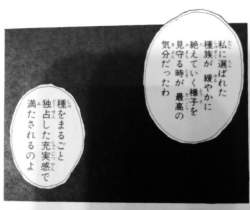 私に選ばれた
種族が 緩やかに
絶えていく様子を
見守る時が 最高の
気分だったわ
種をまるごと
独占した充実感で
満たされるのよ